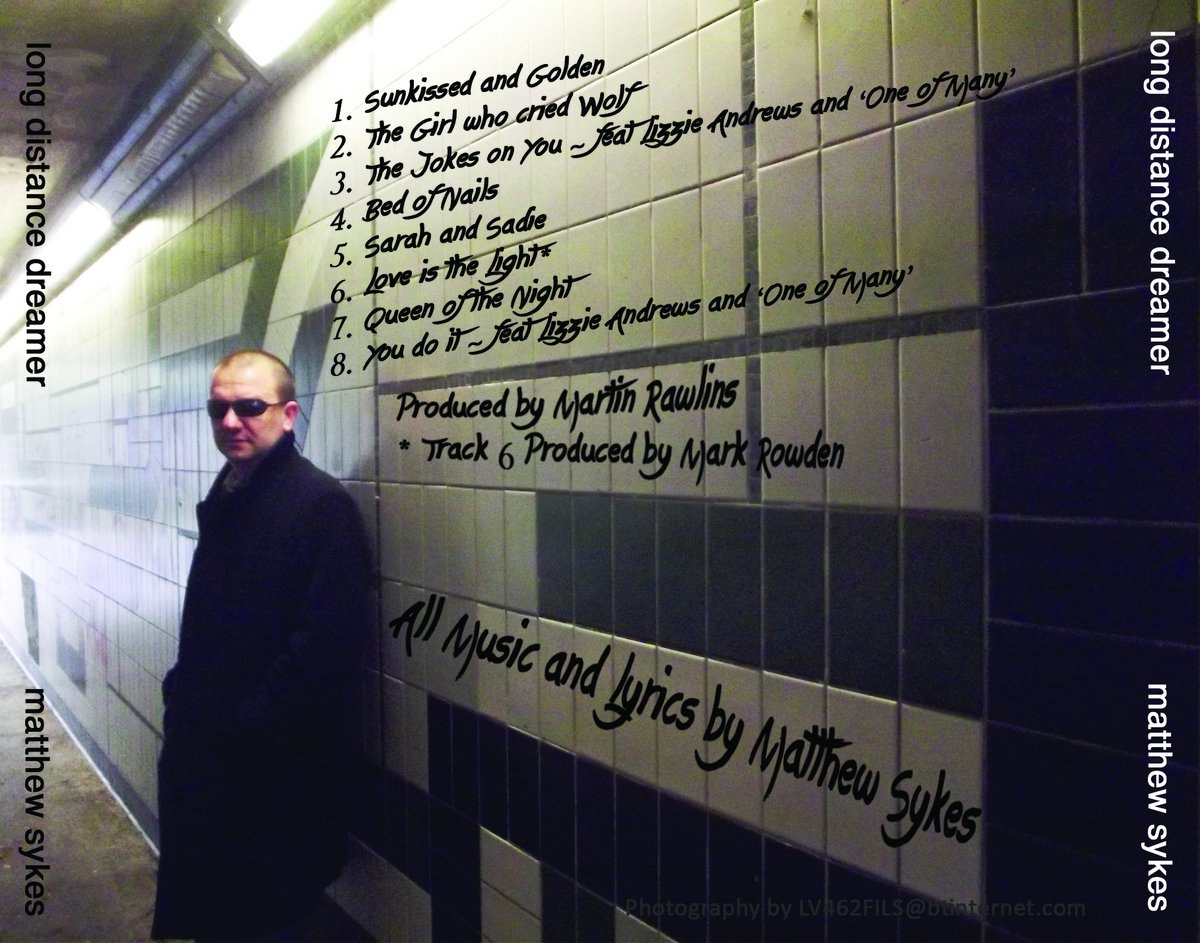 long distance dreamer
matthew sykes
1. Sunkissed and Golden
2. The Girl who cried Wolf
3. The Jokes on You ~ feat Lizzie Andrews and ‘One of Many’
4. Bed of Nails
5. Sarah and Sadie
6. Love is the Light*
7. Queen of the Night
8. You do it ~ feat Lizzie Andrews and ‘One of Many’
Produced by Martin Rawlins
* Track 6 Produced by Mark Rowden
All Music and Lyrics by Matthew Sykes
Photography by LV462FILS@btinternet.com
long distance dreamer
matthew sykes